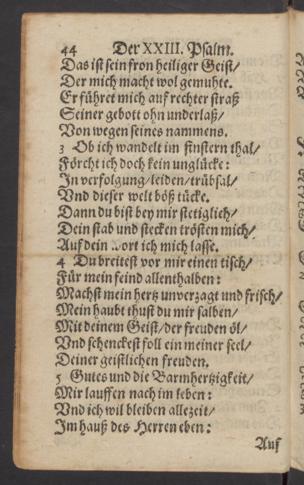 44 Der XXIII. Psalm.
Das ist sein fron heiliger Geist/
Der mich macht wol gemuhte.
Er führet mich auf rechter straß
Seiner gebott ohn underlaß/
Von wegen seines nammens.
3 Ob ich wandelt im finstern thal/
Förcht ich doch kein unglücke:
In verfolgung/leiden/trübsal/
Vnd dieser welt böß tücke.
Dann du bist bey mir stetiglich/
Dein stab und stecken trösten mich/
Auf dein ort ich mich lasse.
4 Du breitest vor mir einen tisch/
Für mein feind allenthalben:
Machst mein hertz unverzagt und frisch/
Mein haubt thust du mir salben/
Mit deinem Geist/der freuden öl/
Vnd schenckest foll ein meiner seel/
Deiner geistlichen freuden.
5 Gutes und die Barmhertzigkeit/
Mir lauffen nach im leben:
Vnd ich wil bleiben allezeit/
Im hauß des Herren eben:
Auf